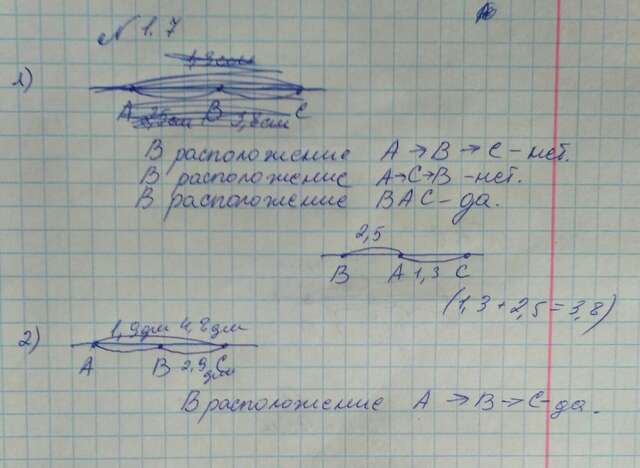 N 1.7
1)
A 2,5см B 3,8см C
В расположение A → B → C - нет.
В расположение A → C → B - нет.
В расположение B A C - да.
2,5
B A 1,3 C
(1,3 + 2,5 = 3,8)
2) 1,9дм 4,8дм
A B 2,9 дм C
В расположение A → B → C - да.